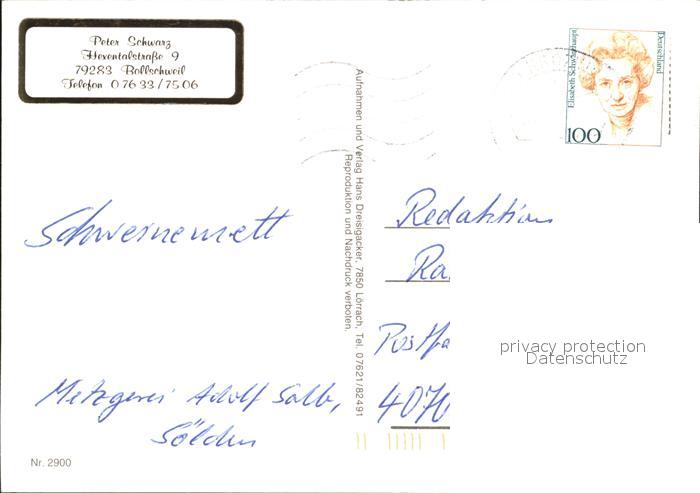 Peter Schwarz
Hexentalstraße 9
79283 Bollschweil
Telefon 0 76 33 / 75 06
Schweinemett
Metzgerei Adolf Salb,
Sölden
Nr. 2900
Aufnahmen und Verlag Hans Dreisigacker, 7850 Lörrach, Tel. 07621/82491
Reproduktion und Nachdruck verboten.
Elisabeth Schwarzhaupt
Deutschland
100
Redaktion
Ra
Postfa
4070
privacy protection
Datenschutz